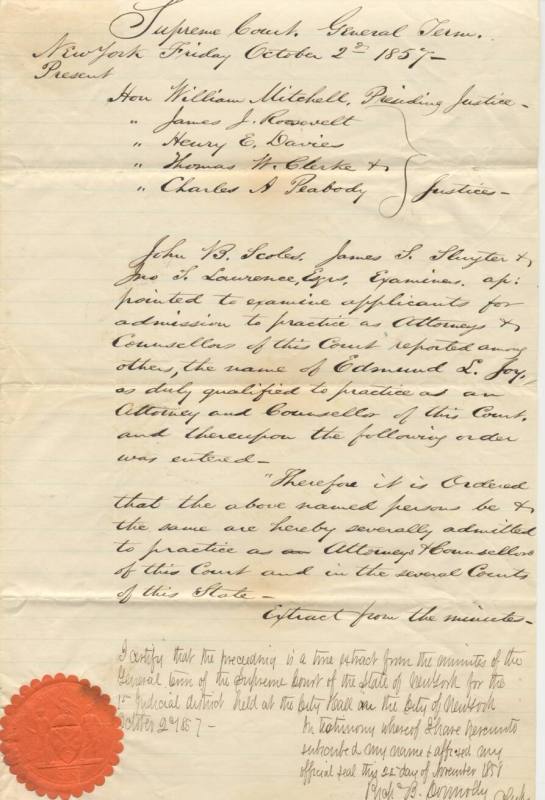 Supreme Court. General Term.
New York Friday October 2nd 1857 –
Present
Hon William Mitchell, Presiding Justice –
" James J. Roosevelt
" Henry E. Davies
" Thomas W. Clerke &
" Charles A Peabody Justices –
John B. Scoles, James S. Sluyter &
Jno S. Lawrence, Esqrs, Examiners, ap:
pointed to examine applicants for
admission to practice as Attorneys &
Counsellors of this Court reported among
others, the name of Edmund L. Joy,
as duly qualified to practice as an
Attorney and Counsellor of this Court,
and thereupon the following order
was entered –
"Therefore it is Ordered
that the above named persons be &
the same are hereby severally admitted
to practice as an Attorneys & Counsellors
of this Court and in the several Courts
of this State –
Extract from the minutes –
I certify that the preceeding is a true extract from the minutes of the
General term of the Supreme Court of the State of New York for the
1st Judicial district held at the City Hall in the City of New York
October 2d 1857 –
In testimony whereof I have hereunto
subscribed my name & affixed my
official seal this day of November 1857
B. Donnolly